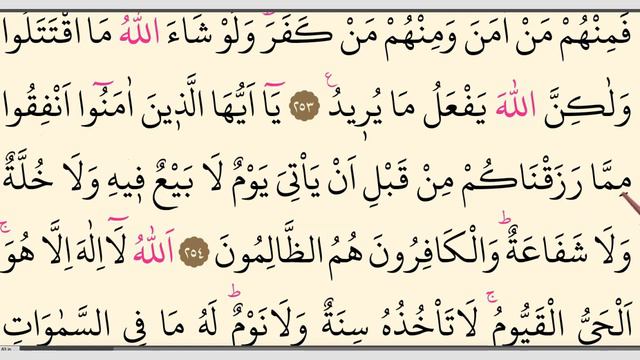 فَمِنْهُمْ مَنْ اٰمَنَ وَمِنْهُمْ مَنْ كَفَرَۜ وَلَوْ شَاءَ اللّٰهُ مَا اقْتَتَلُوا
وَلٰكِنَّ اللّٰهَ يَفْعَلُ مَا يُر۪يدُ۟ ﴿٢٥٣﴾ يَٓا اَيُّهَا الَّذ۪ينَ اٰمَنُٓوا اَنْفِقُوا
مِمَّا رَزَقْنَاكُمْ مِنْ قَبْلِ اَنْ يَأْتِيَ يَوْمٌ لَا بَيْعٌ ف۪يهِ وَلَا خُلَّةٌ
وَلَا شَفَاعَةٌۜ وَالْكَافِرُونَ هُمُ الظَّالِمُونَ ﴿٢٥٤﴾ اَللّٰهُ لَٓا اِلٰهَ اِلَّا هُوَۚ
اَلْحَيُّ الْقَيُّومُۚ لَا تَأْخُذُهُ سِنَةٌ وَلَا نَوْمٌۜ لَهُ مَا فِي السَّمٰوَاتِ